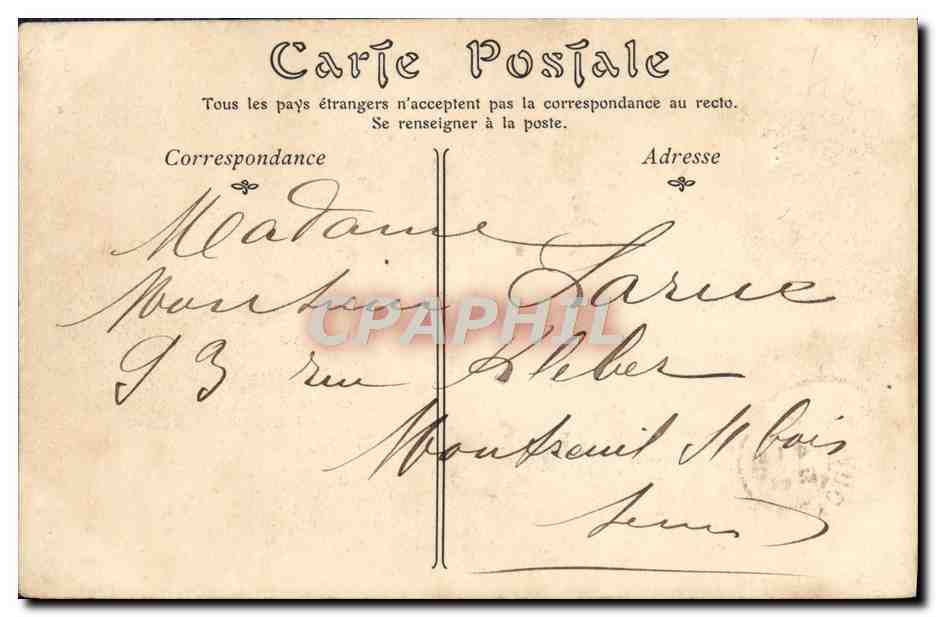 Carte Postale
Tous les pays étrangers n'acceptent pas la correspondance au recto.
Se renseigner à la poste.
Correspondance
Adresse
Madame
Larue
CPAPHIL
93 rue Kleber
Montreuil s/ bois
Seine